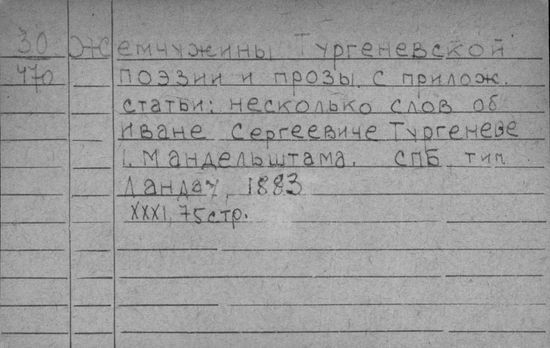 30 Жемчужины Тургеневской
470 поэзии и прозы с прилож.
статьи: несколько слов об
Иване Сергеевиче Тургеневе
I. Мандельштама. СПБ, тип
Ландау, 1883
XXXI, 75 стр.